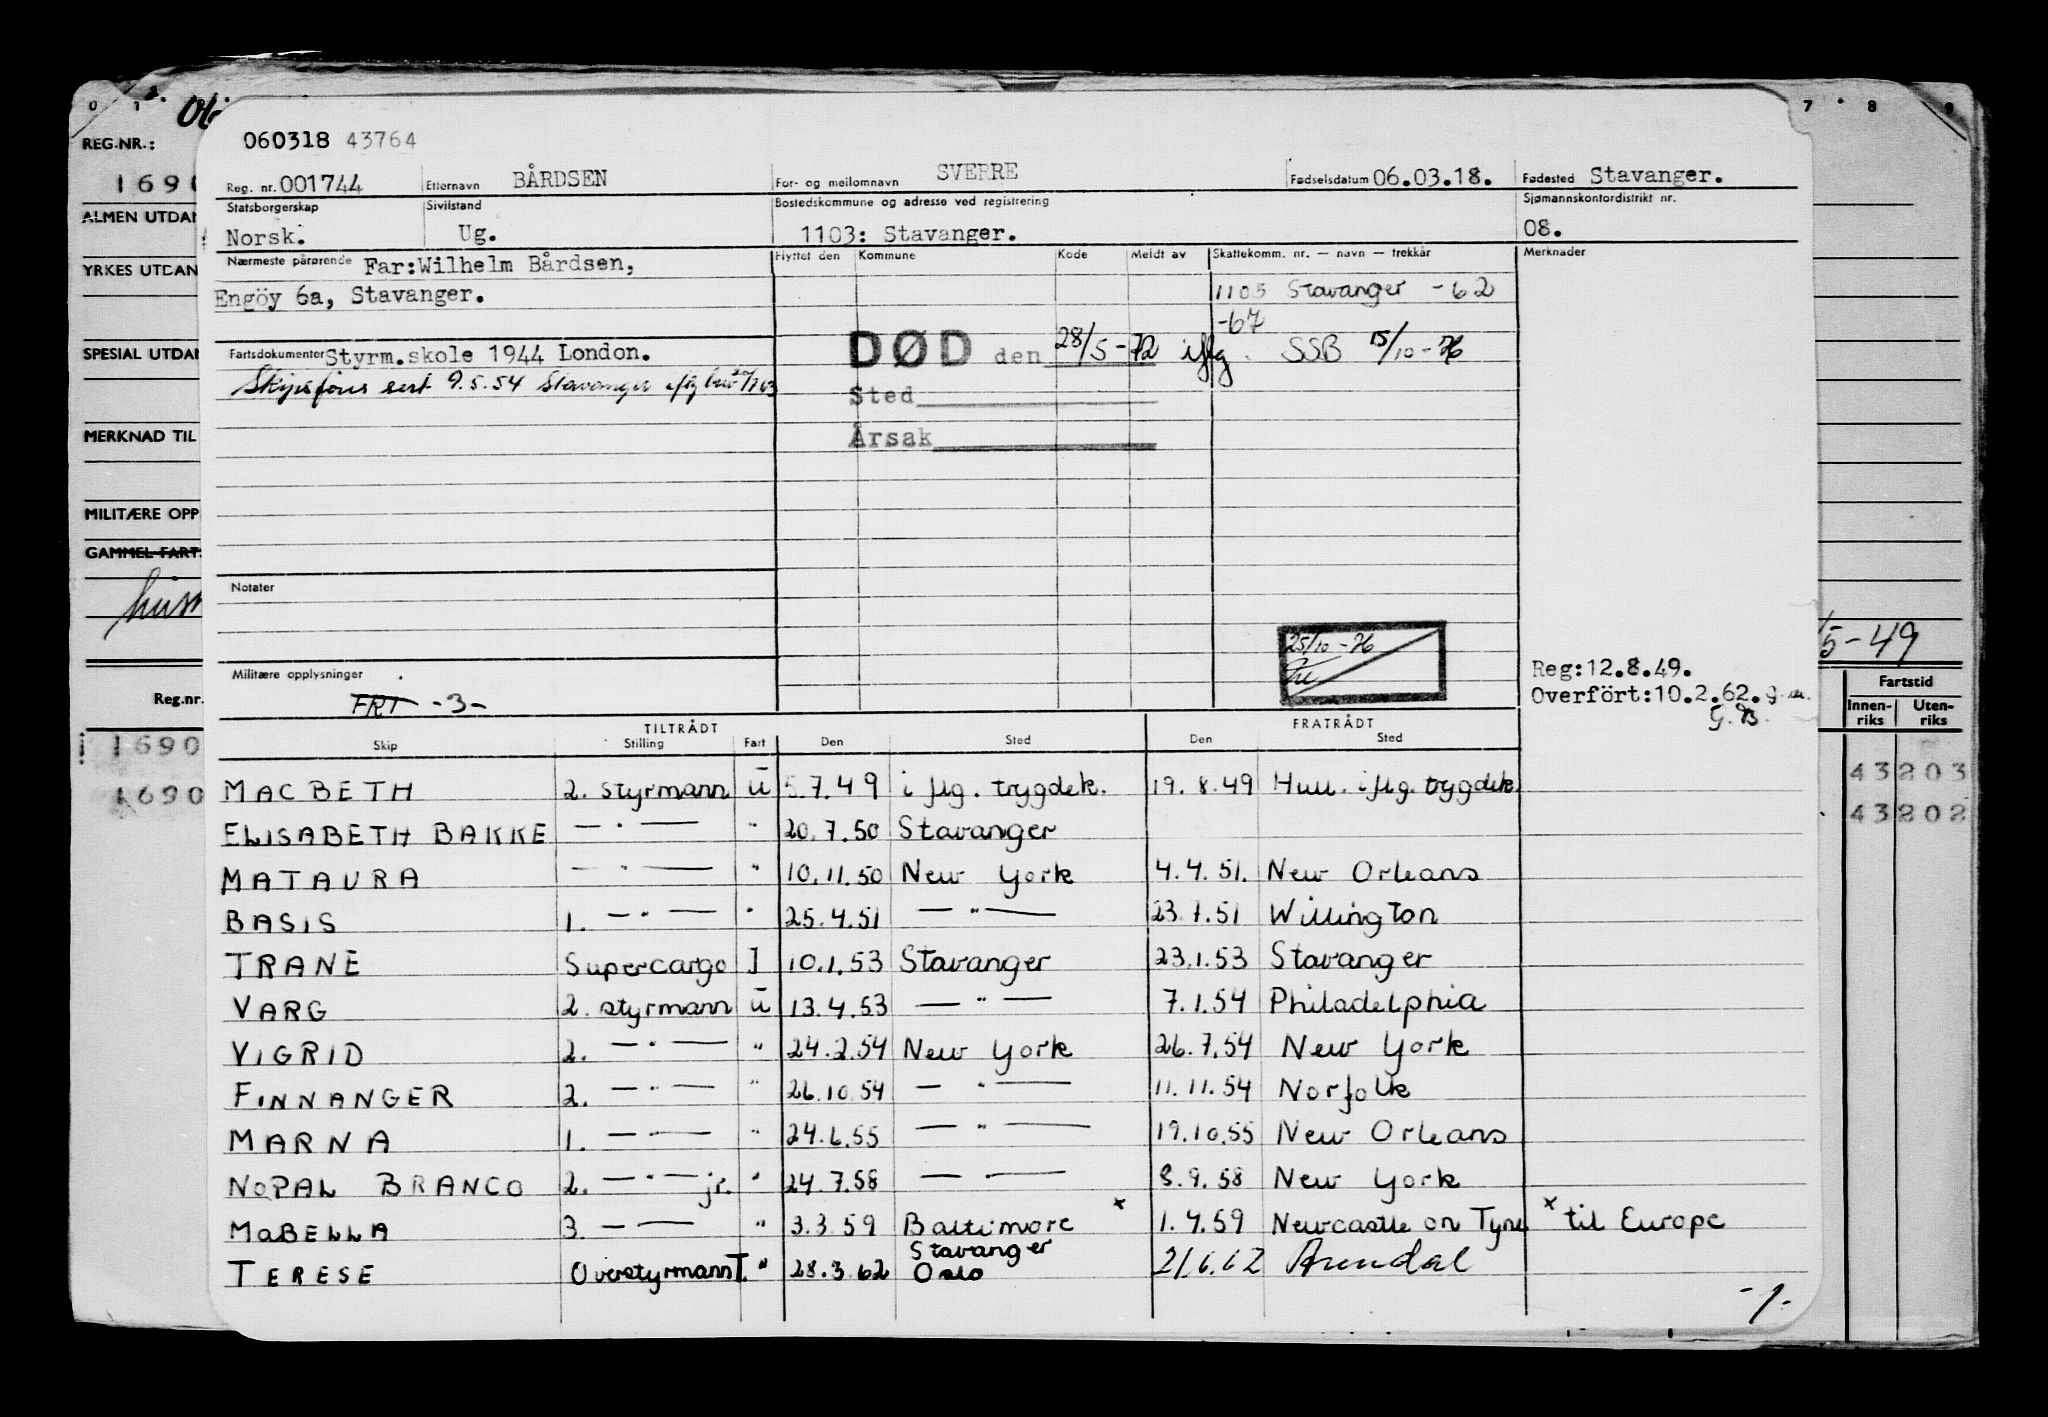 0 1 7 8 9
REG.NR.:
1690
ALMEN UTDAN
YRKES UTDAN
SPESIAL UTDAN
MERKNAD TIL
MILITÆRE OPP
GAMMEL FART
Reg.nr.
1690
1690
/5-49
Fartstid
Innen-riks Uten-riks
43203
43202
060318 43764
Reg. nr. 001744 Etternavn BÅRDSEN For- og mellomnavn SVERRE Fødselsdatum 06.03.18. Fødested Stavanger.
Statsborgerskap Sivilstand Bostedskommune og adresse ved registrering Sjømannskontordistrikt nr.
Norsk. Ug. 1103: Stavanger. 08.
Nærmeste pårørende Far:Wilhelm Bårdsen, Flyttet den Kommune Kode Meldt av Skattekomm. nr. — navn — trekkår Merknader
Engöy 6a, Stavanger. 1103 Stavanger -62
-67
Fartsdokumenter Styrm.skole 1944 London. DØD den 28/5-72 iflg. SSB 15/10-76
Skipsförer sert 9.5.54 Stavanger
Sted
Årsak
Notater
25/10-76
Militære opplysninger
FRT -3-
Reg:12.8.49.
Overfört:10.2.62.
G.B.
TILTRÅDT FRATRÅDT
Skip Stilling Fart Den Sted Den Sted
MACBETH 2. styrmann u 5.7.49 i flg. trygdek. 19.8.49 Hull. iflg. trygdek.
ELISABETH BAKKE — " — " 20.7.50 Stavanger
MATAURA — " — " 10.11.50 New York 4.4.51. New Orleans
BASIS 1. — " — " 25.4.51 — " — 23.7.51 Willington
TRANE Supercargo I 10.1.53 Stavanger 23.1.53 Stavanger
VARG 2. styrmann u 13.4.53 — " — 7.1.54 Philadelphia
VIGRID 2. — " — " 24.2.54 New York 26.7.54 New York
FINNANGER 2. — " — " 26.10.54 — " — 11.11.54 Norfolk
MARNA 1. — " — " 24.6.55 — " — 19.10.55 New Orleans
NOPAL BRANCO 2. — " — jr. " 24.7.58 — " — 8.9.58 New York
MABELLA 3. — " — " 3.3.59 Baltimore x 1.4.59 Newcastle on Tyne x til Europe
Stavanger
TERESE Overstyrmann I. " 28.3.62 Oslo 21.6.62 Arendal
-1-